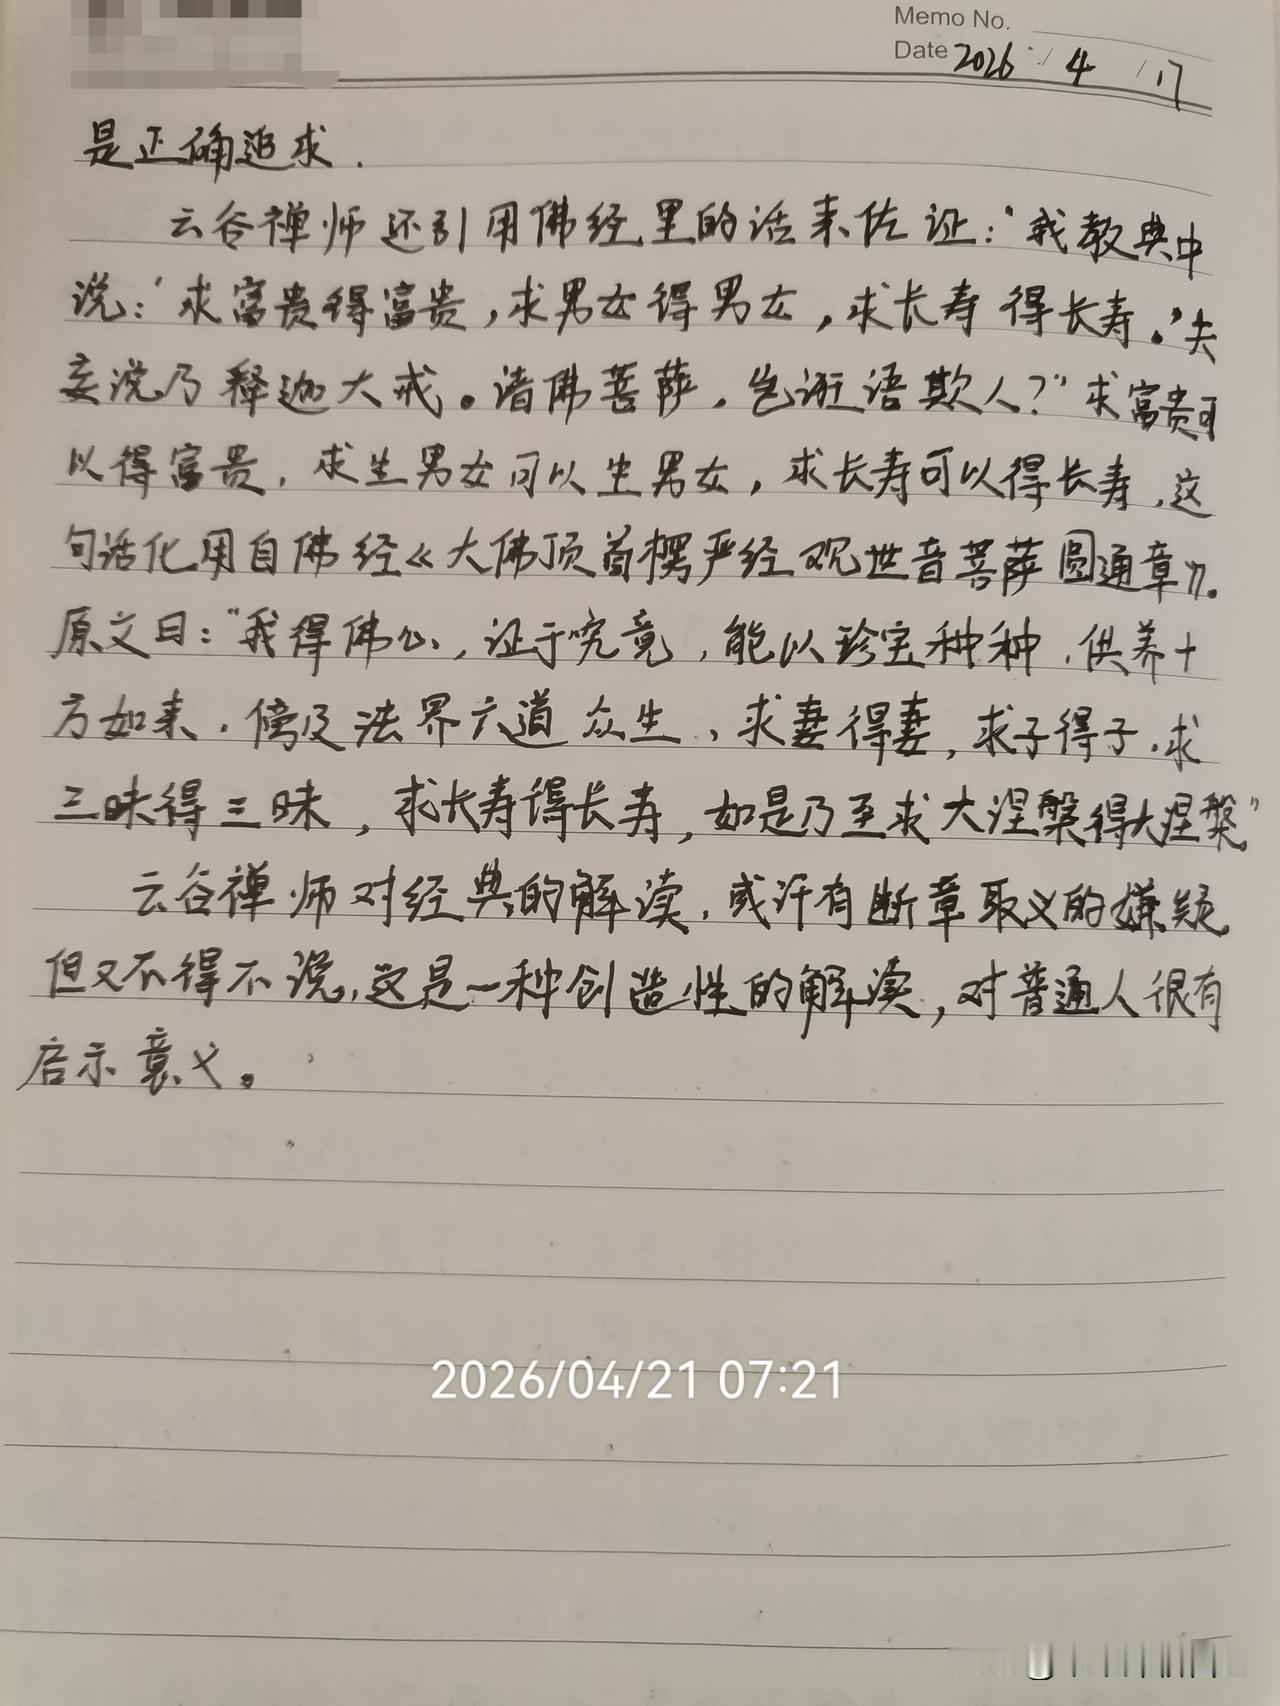 Memo No.
Date 2026 / 4 / 17
是正确追求.
云谷禅师还引用佛经里的话来佐证：“我教典中
说：‘求富贵得富贵，求男女得男女，求长寿得长寿。’夫
妄说乃释迦大戒。诸佛菩萨，岂诳语欺人？”求富贵可
以得富贵，求生男女可以生男女，求长寿可以得长寿，这
句话化用自佛经《大佛顶首楞严经观世音菩萨圆通章》。
原文曰：“我得佛心，证于究竟，能以珍宝种种，供养十
方如来，傍及法界六道众生，求妻得妻，求子得子，求
三昧得三昧，求长寿得长寿，如是乃至求大涅槃得大涅槃”
云谷禅师对经典的解读，或许有断章取义的嫌疑
但又不得不说，这是一种创造性的解读，对普通人很有
启示意义。
2026/04/21 07:21